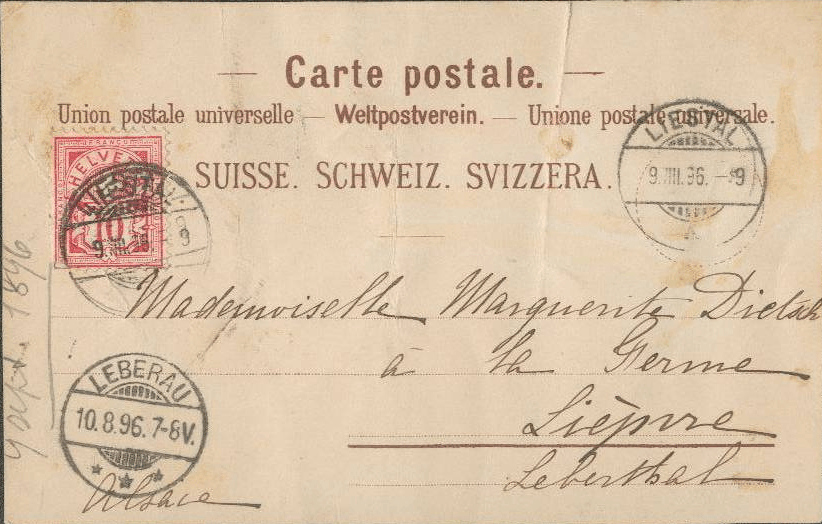 Carte postale.
Union postale universelle — Weltpostverein. — Unione postale universale.
SUISSE. SCHWEIZ. SVIZZERA.
FRANCO
HELVETIA
10
LIESTAL
9.VIII.96.–9
LIESTAL
9.VIII.96 9
Mademoiselle Marguerite Dietsch
à la Germe
Lièpvre
Leberthal
Alsace
LEBERAU
10.8.96.7-8V.
1896